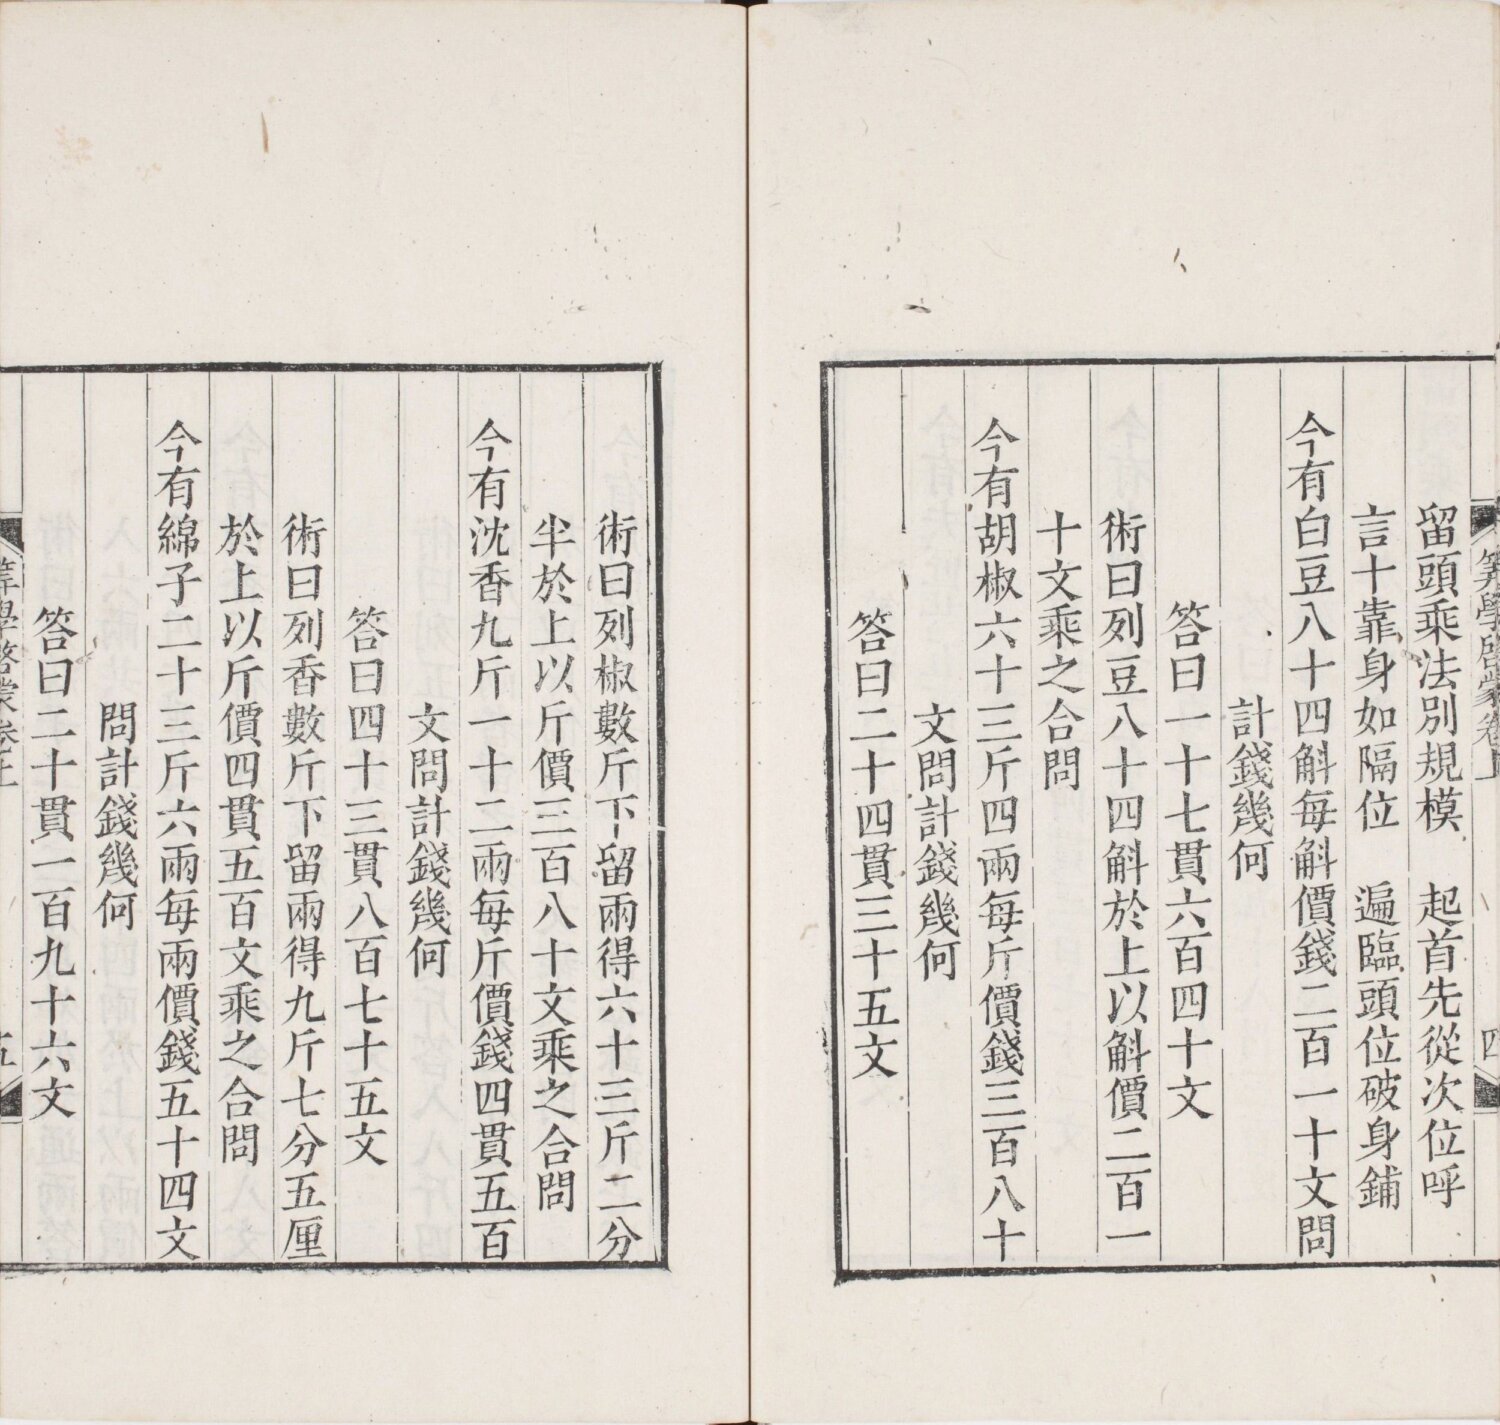 算學啓蒙卷上
四
留頭乘法別規模　起首先從次位呼
言十靠身如隔位　遍臨頭位破身鋪
今有白豆八十四斛每斛價錢二百一十文問
計錢幾何
答曰一十七貫六百四十文
術曰列豆八十四斛於上以斛價二百一
十文乘之合問
今有胡椒六十三斤四兩每斤價錢三百八十
文問計錢幾何
答曰二十四貫三十五文
術曰列椒數斤下留兩得六十三斤二分
半於上以斤價三百八十文乘之合問
今有沈香九斤一十二兩每斤價錢四貫五百
文問計錢幾何
答曰四十三貫八百七十五文
術曰列香數斤下留兩得九斤七分五厘
於上以斤價四貫五百文乘之合問
今有綿子二十三斤六兩每兩價錢五十四文
問計錢幾何
答曰二十貫一百九十六文
算學啓蒙卷上
五